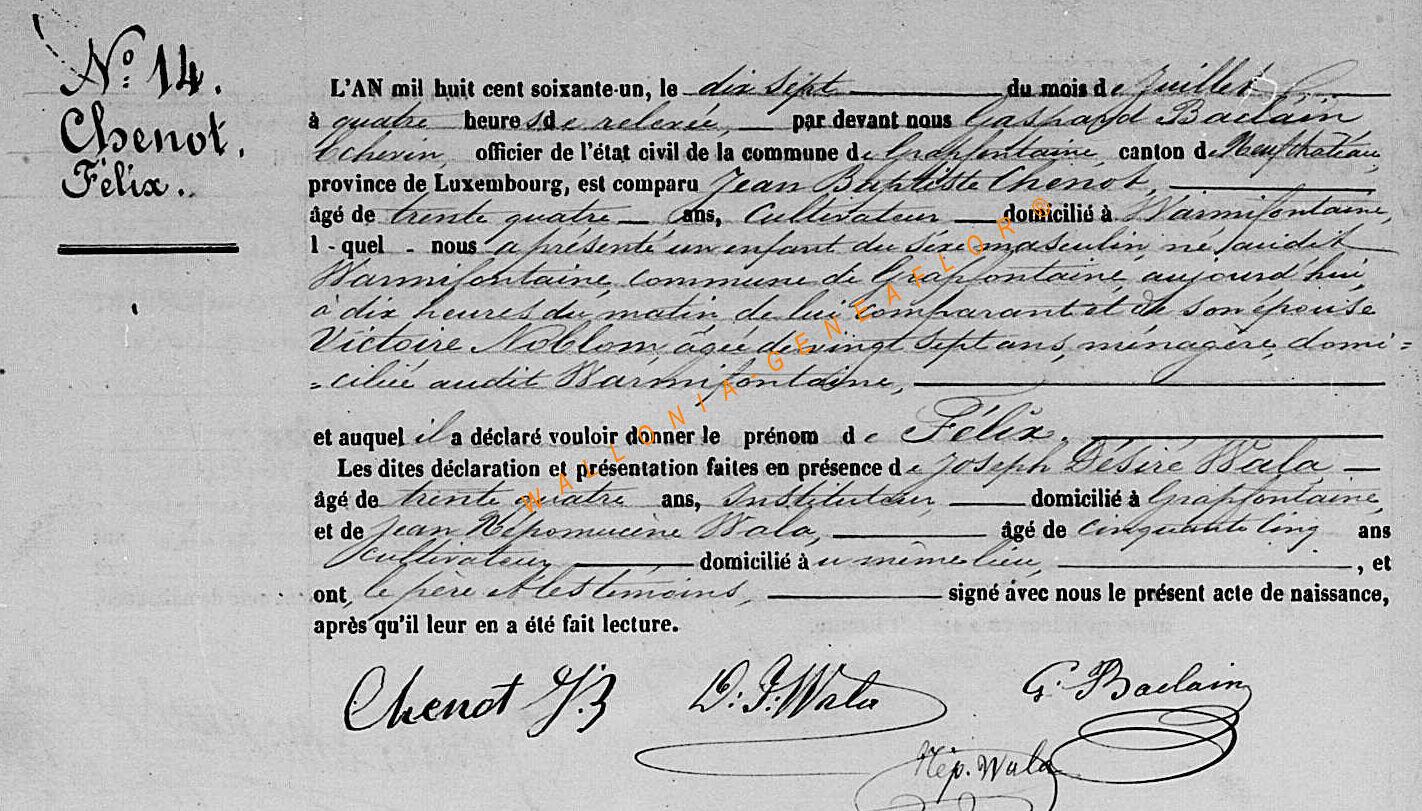 N° 14.
Chenot,
Félix.
L'AN mil huit cent soixante-un, le dix sept du mois de Juillet
à quatre heures de relevée, par devant nous Gaspard Baclain
Echevin officier de l'état civil de la commune de Grapfontaine, canton de Neufchateau,
province de Luxembourg, est comparu Jean Baptiste Chenot,
âgé de trente quatre ans, Cultivateur domicilié à Warmifontaine,
l-quel - nous a présenté un enfant du séxe masculin, né audit
Warmifontaine, commune de Grapfontaine, aujourd'hui,
à dix heures du matin de lui comparant et de son épouse
Victoire Noblom âgée de vingt sept ans, ménagère, domi=
=ciliée audit Warmifontaine,
et auquel il a déclaré vouloir donner le prénom de Félix.
Les dites déclaration et présentation faites en présence de Joseph Désiré Wala
âgé de trente quatre ans, Instituteur, domicilié à Grapfontaine,
et de Jean Népomucène Wala, âgé de cinquante cinq ans
cultivateur domicilié à u même lieu, , et
ont, le père et les témoins, signé avec nous le présent acte de naissance,
après qu'il leur en a été fait lecture.
Chenot J.B D. J. Wala G. Baclain
Nép. Wala
WALLONIA-GENEAFLOR ®